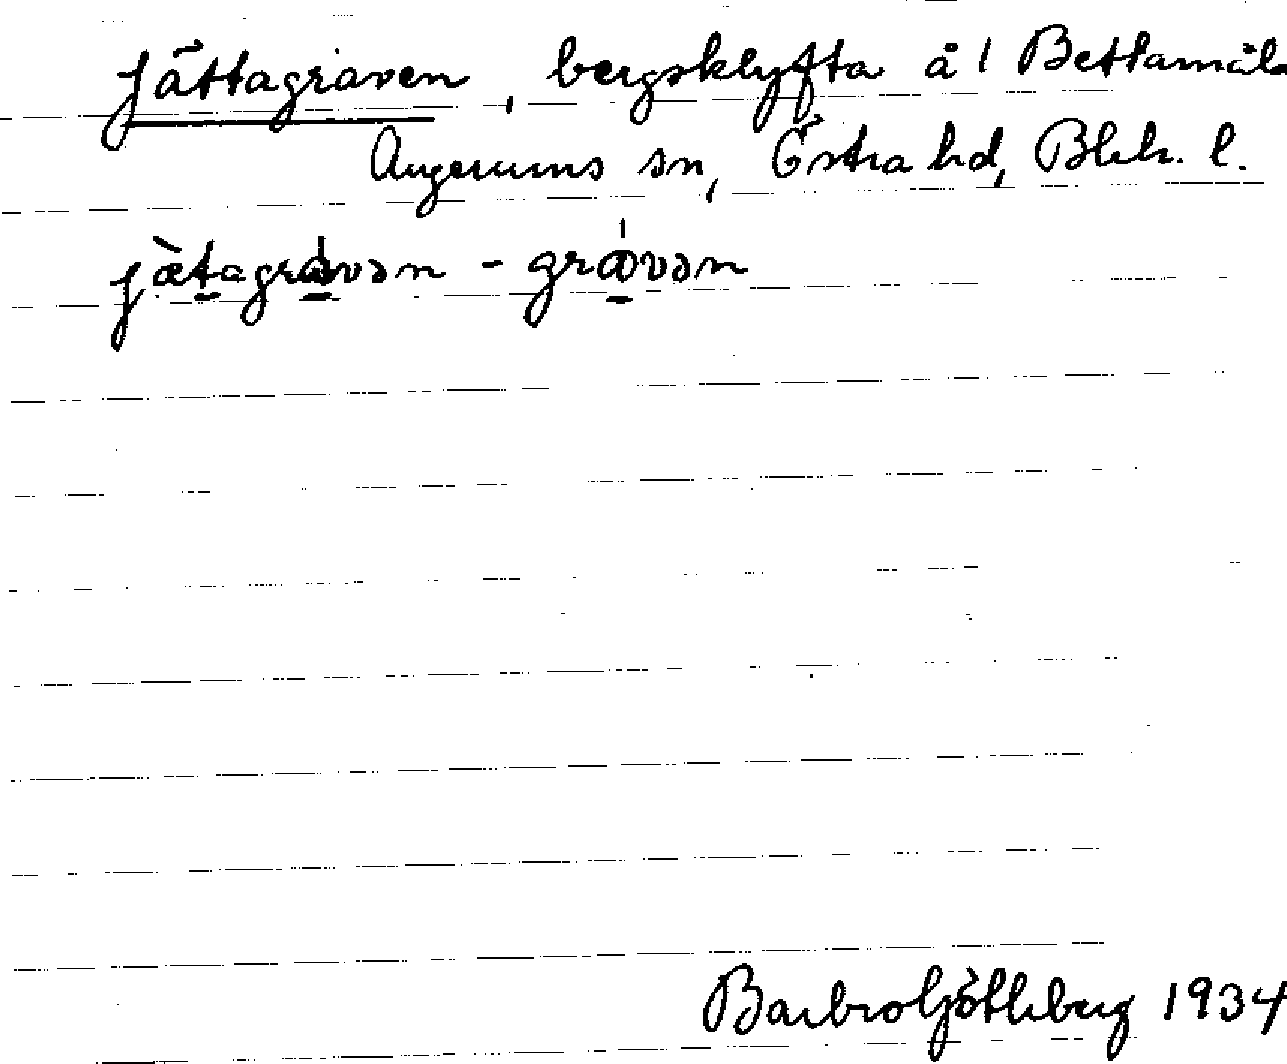 Jättagraven, bergsklyfta å 1 Bettamåla
Augerums sn, Östra hd, Blek. l.
jæ̀tagrávən - grávən
Barbro Götheberg 1934